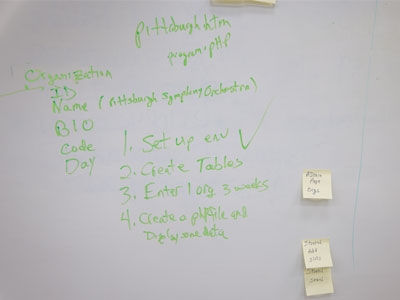 pittsburgh.htm
program.pHp
Organization
ID
Name (Pittsburgh Symphony Orchestra)
BIO
Code
Day
1. Set up env ✓
2. Create Tables
3. Enter 1 org 3 weeks
4. Create a php file and
Display some data
Admin
Page
Orgs
Add